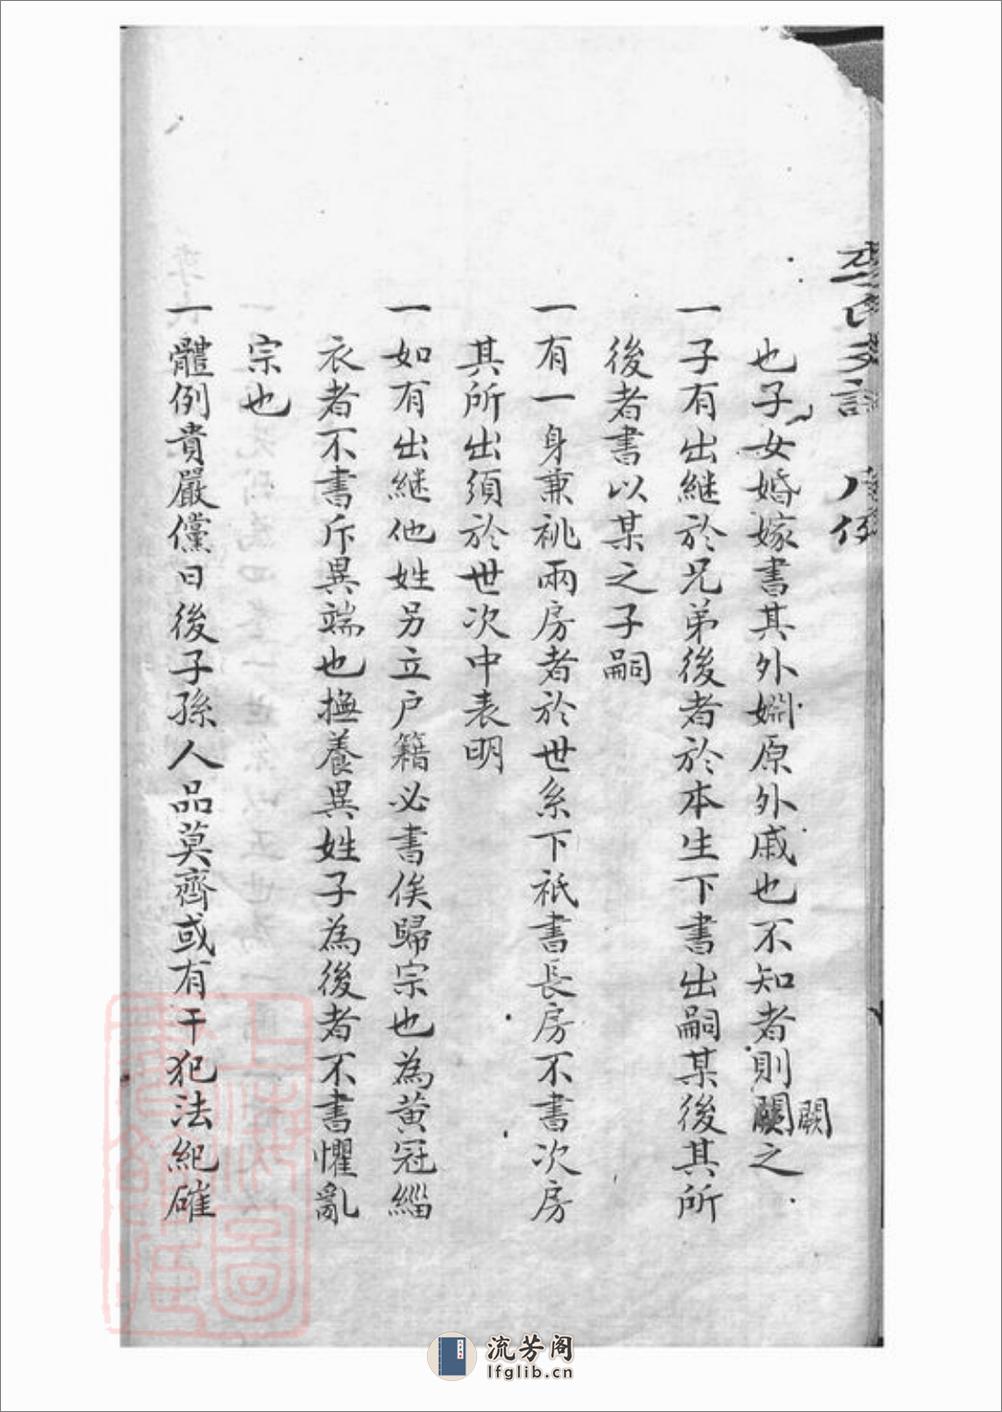 也子女婚嫁書其外姻原外戚也不知者則闕之
闕
一子有出継於兄弟後者於本生下書出嗣某後其所
後者書以某之子嗣
一有一身兼祧兩房者於世系下祇書長房不書次房
其所出須於世次中表明
一如有出継他姓另立户籍必書俟歸宗也為黄冠緇
衣者不書斥異端也撫養異姓子為後者不書懼亂
宗也
一體例貴嚴儻日後子孫人品莫齊或有干犯法紀確
流芳阁
lfglib.cn